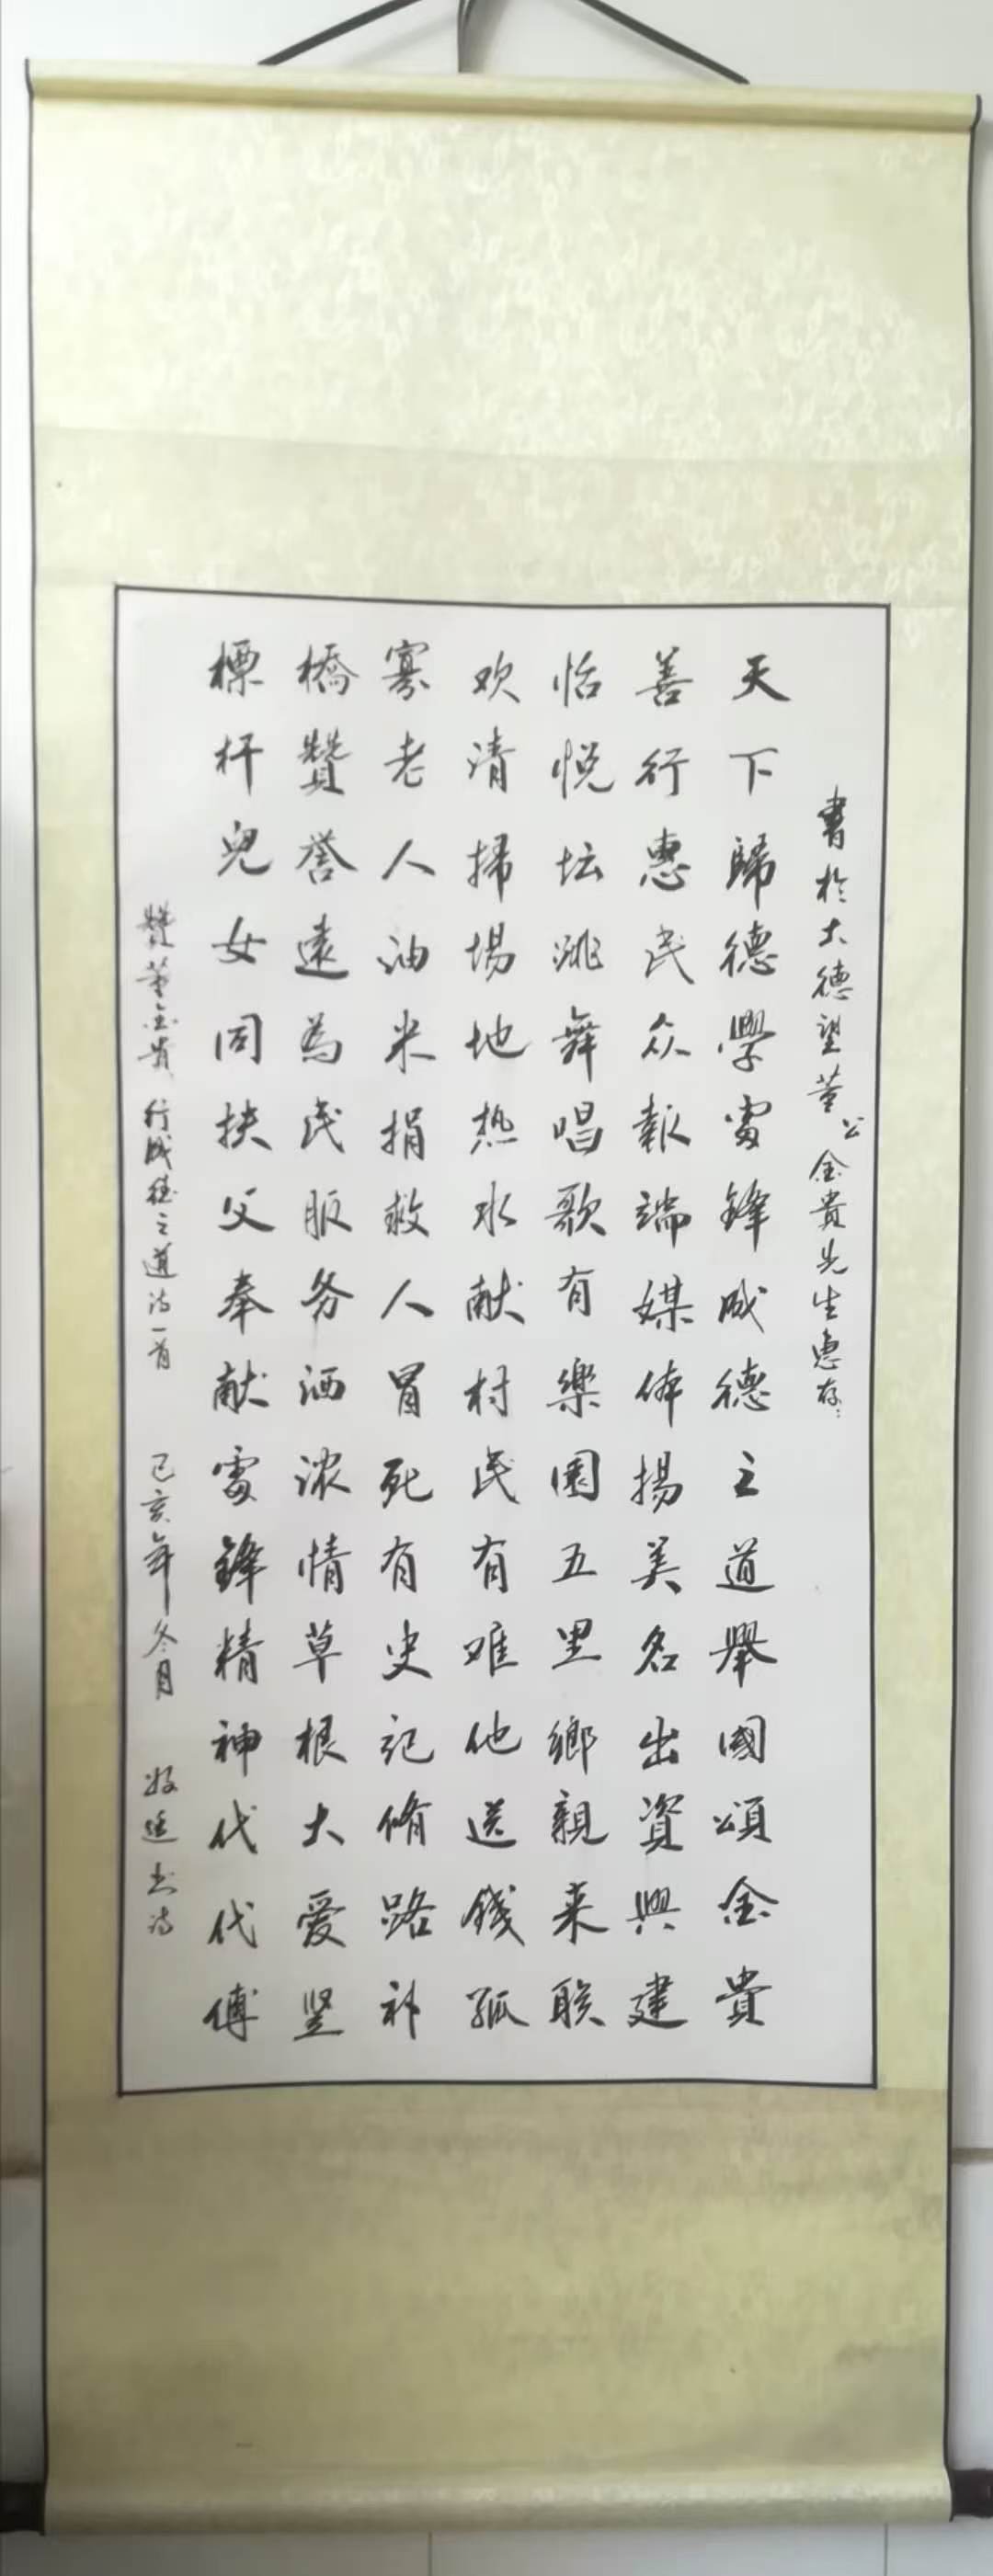 書於大德望董公金貴先生惠存:
天下歸德學雷鋒成德之道舉國頌金貴
善行惠民众報端媒体揚美名出資興建
怡悦坛跳舞唱歌有樂園五里鄉親来联
欢清掃場地热水献村民有难他送錢孤
寡老人油米捐救人冒死有史記脩路补
橋贊誉遠为民服务洒浓情草根大爱竖
標杆兒女同扶父奉献雷鋒精神代代傳
贊董金貴行成德之道诗一首 己亥年冬月 书诗